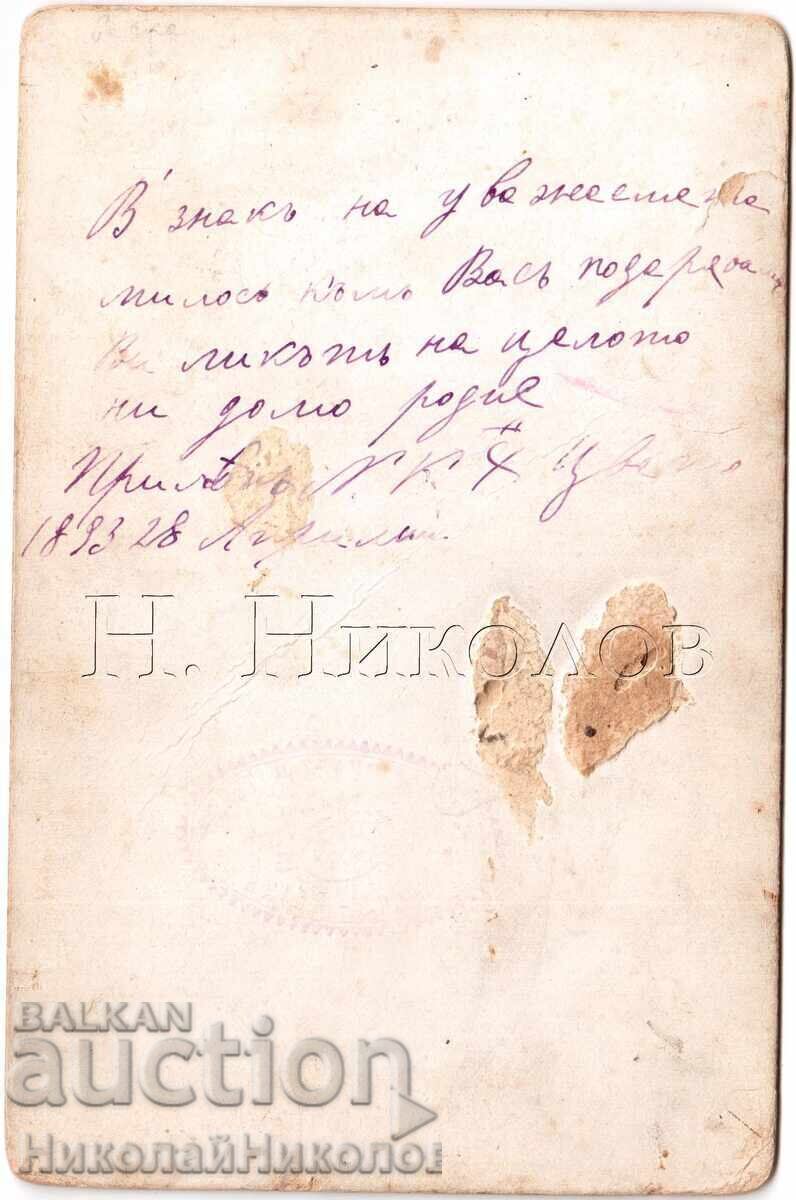 В' знакъ на уважаемата
милось къмъ Васъ подарявамы
Ви ликътъ на целото
ни домо родие
Прилѣпъ N К Х Цвет
1893 28 Априлий
Н. Николов
BALKAN
auction
НиколайНиколов